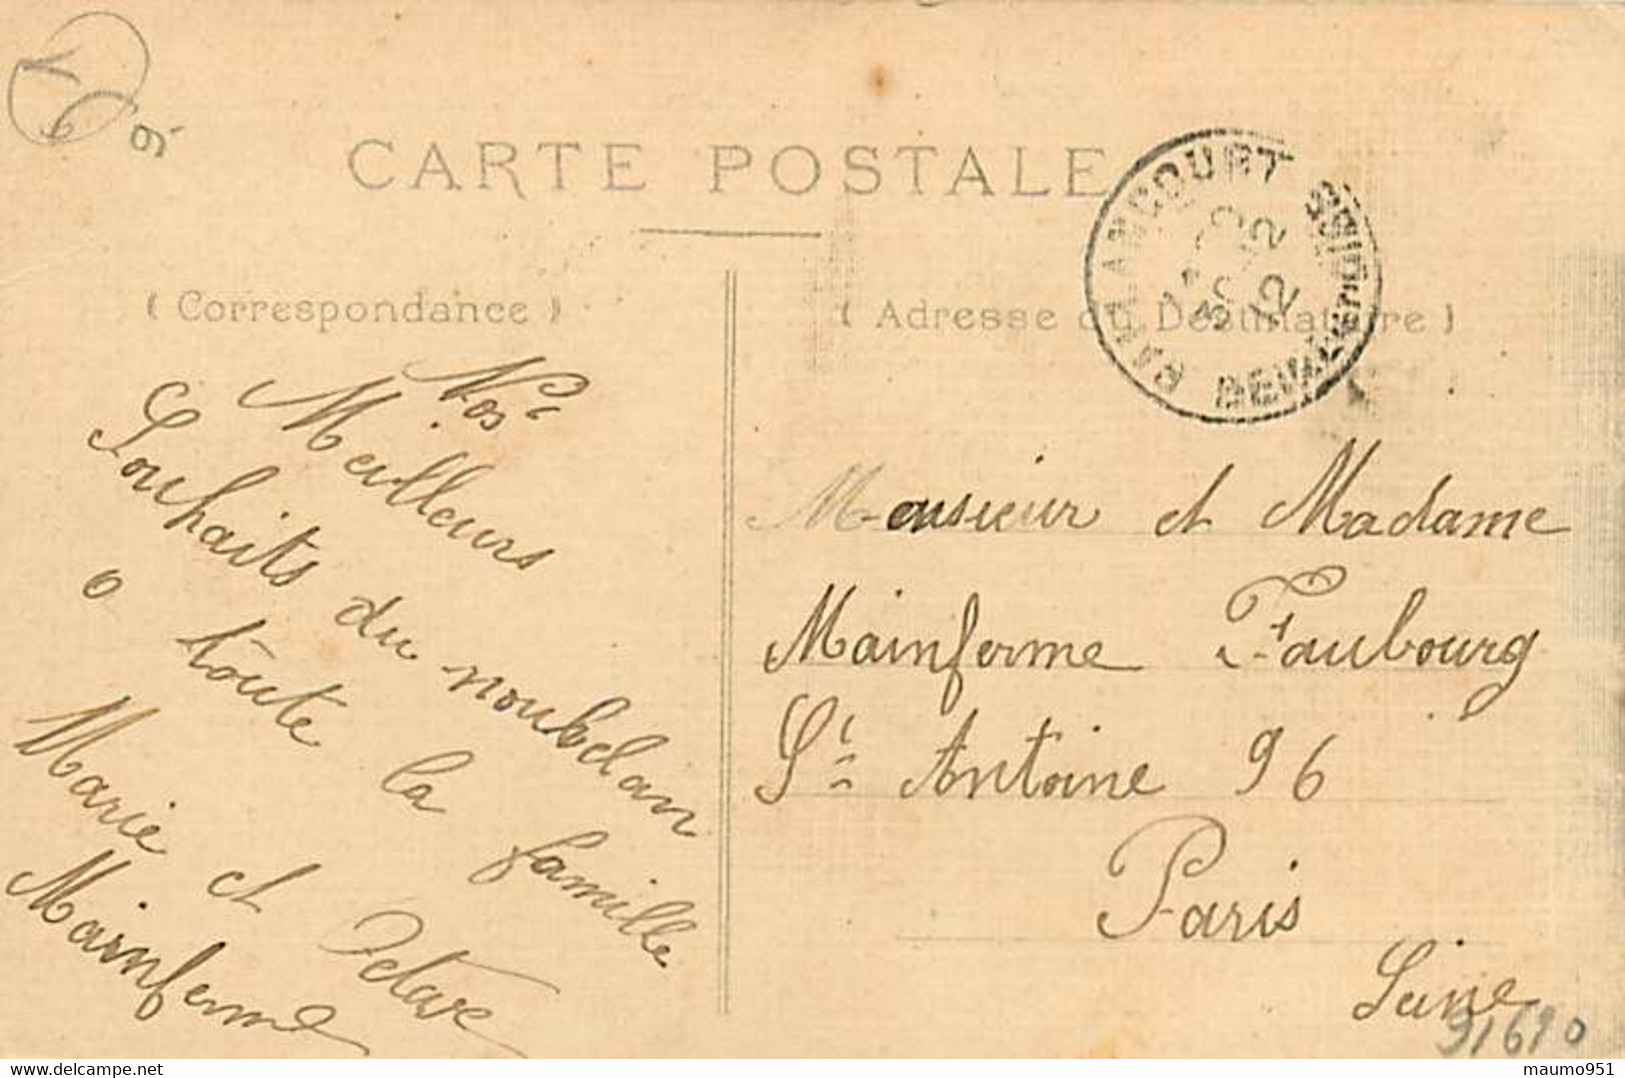 CARTE POSTALE
( Correspondance )
( Adresse du Destinataire )
Nos
Meilleurs
Souhaits du noubelan
a toute la famille
Marie et Octave
Mainferme
Monsieur et Madame
Mainferme Faubourg
St Antoine 96
Paris
Seine
31610
maumo951